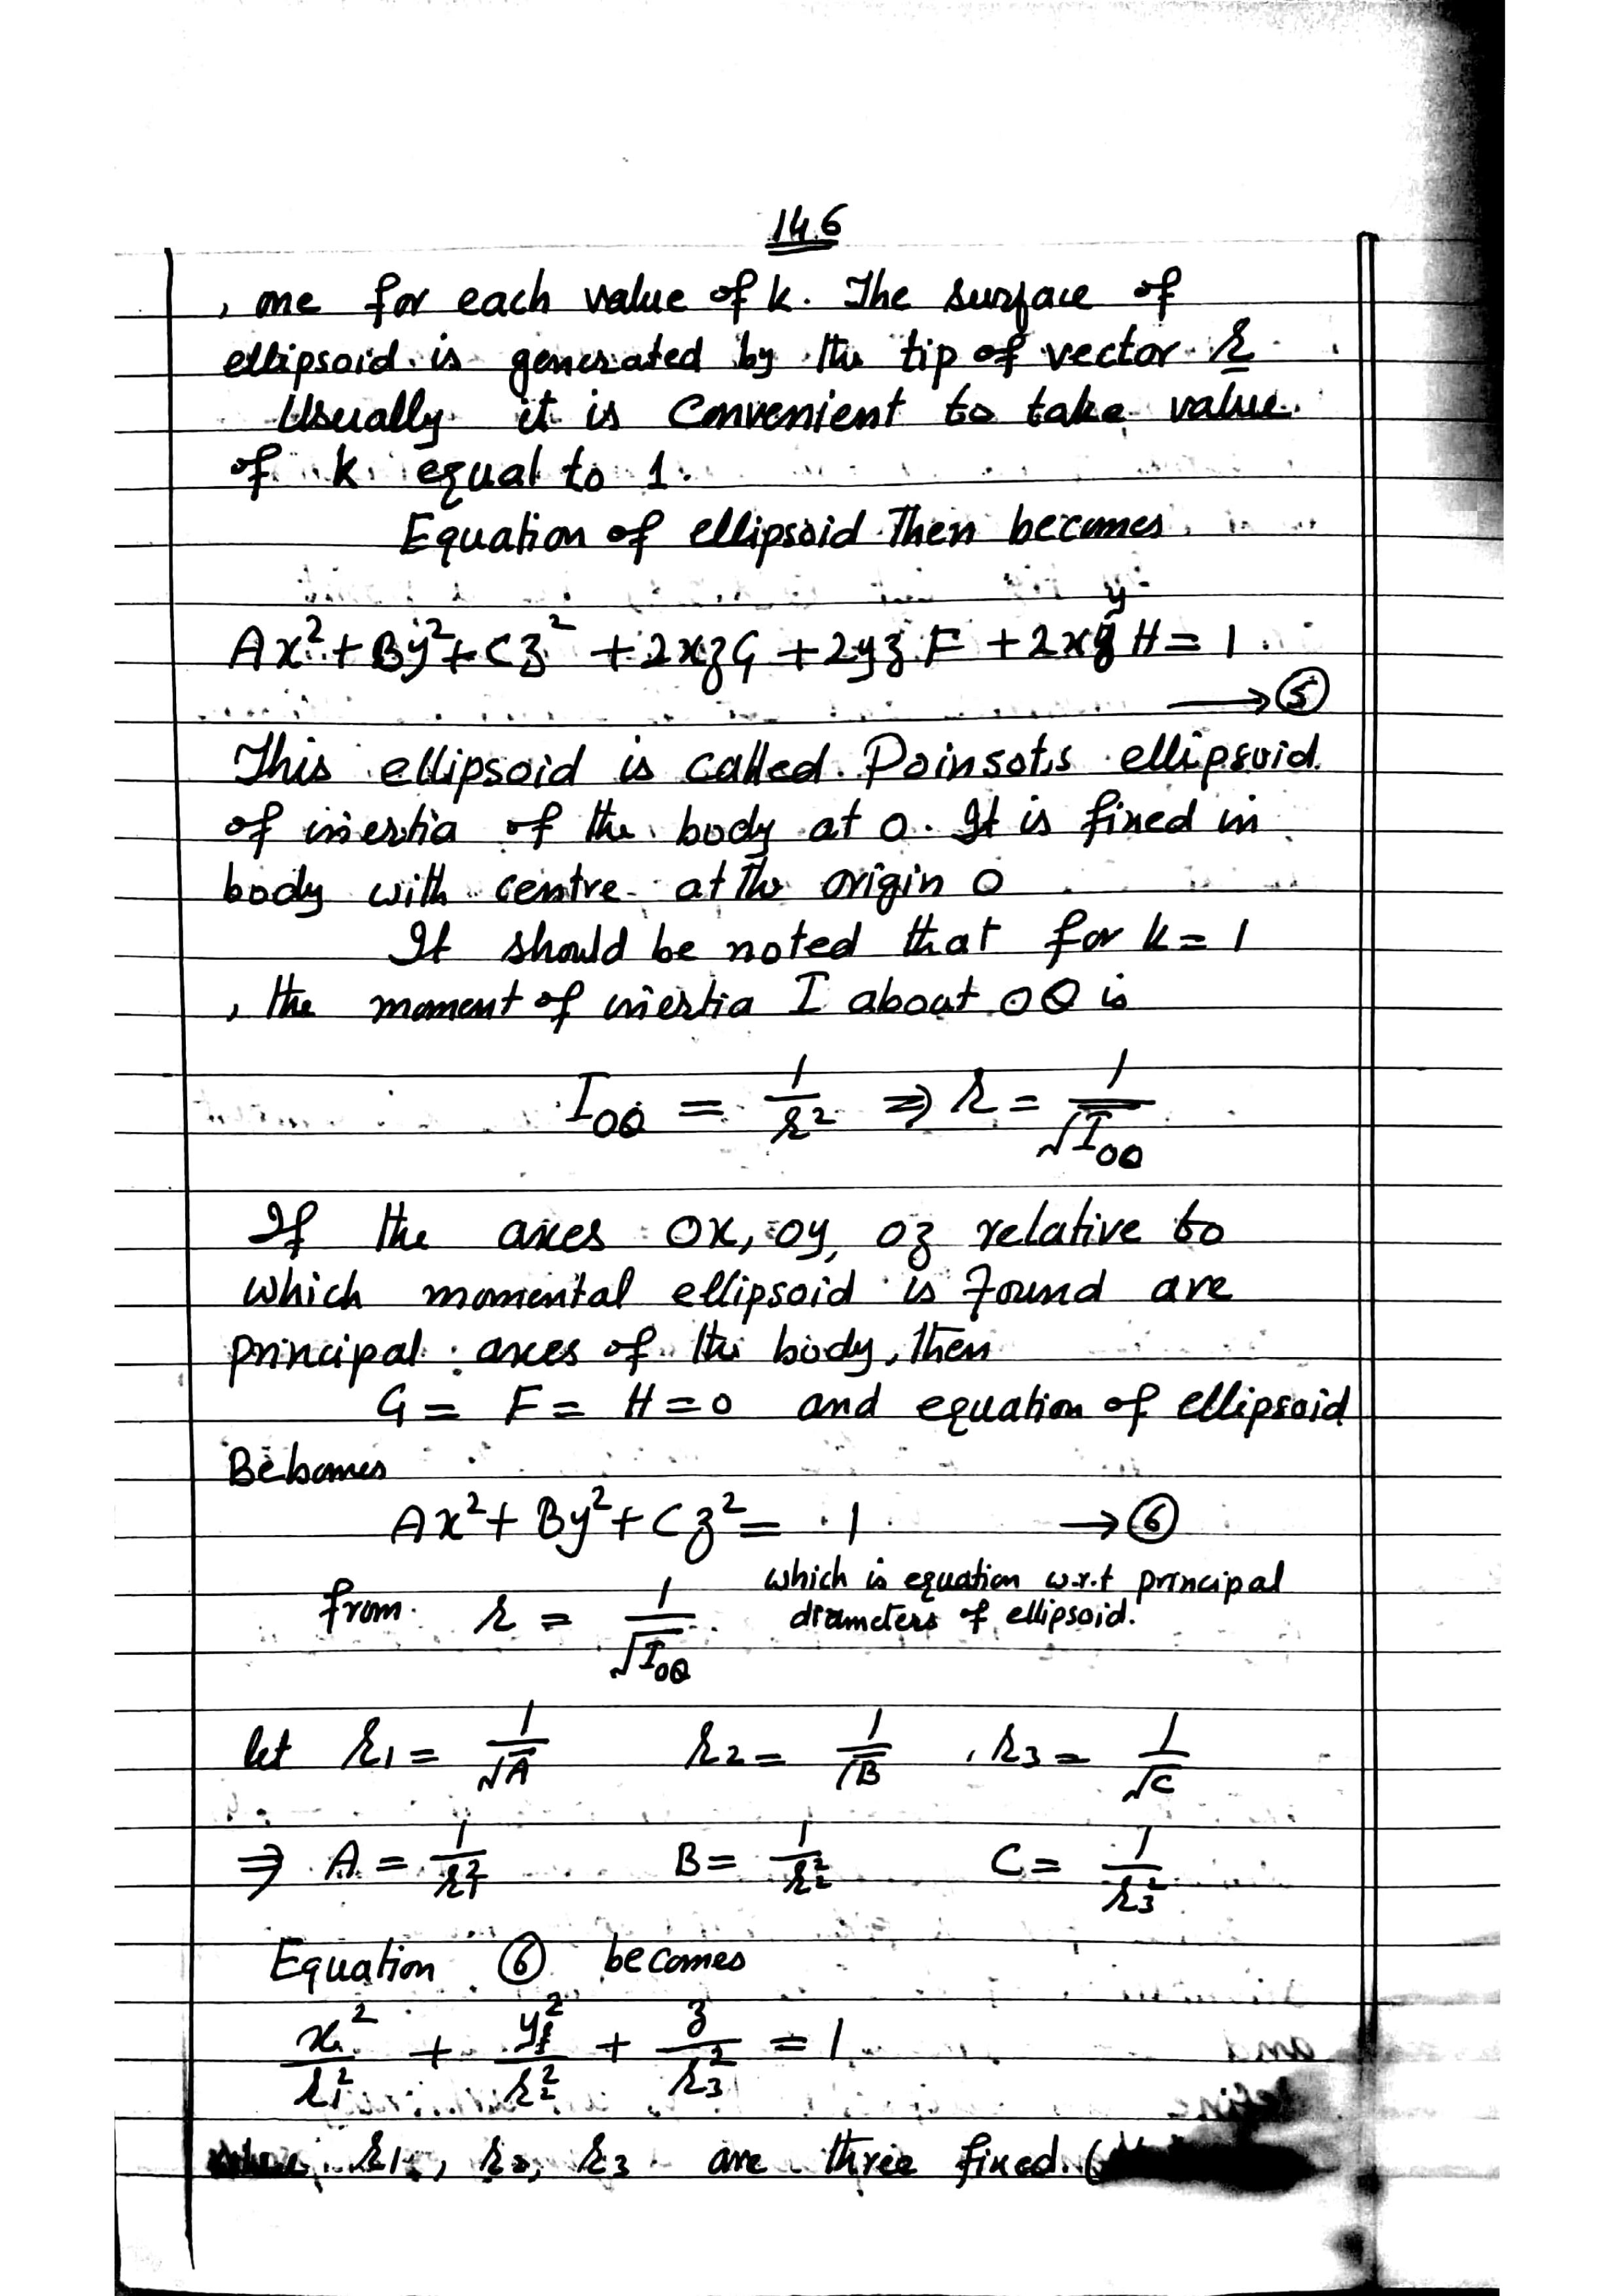 146
, one for each value of k. The surface of
ellipsoid is generated by the tip of vector r
Usually it is Convenient to take value
of k equal to 1.
Equation of ellipsoid Then becomes
y
Ax² + By² + Cz² + 2xzG + 2yzF + 2xyH = 1
→ ⑤
This ellipsoid is called Poinsot,s ellipsoid
of inertia of the body at O. It is fixed in
body with centre at the origin O
It should be noted that for k = 1
, the moment of inertia I about OQ is
I_OQ = 1/r² ⇒ r = 1/√I_OQ
If the axes Ox, oy, oz relative to
which momental ellipsoid is found are
principal axes of the body, then
G = F = H = 0 and equation of ellipsoid
Becomes
Ax² + By² + Cz² = 1 → ⑥
which is equation w.r.t principal
diameters of ellipsoid.
from r = 1/√I_OQ
let r₁ = 1/√A r₂ = 1/√B , r₃ = 1/√C
⇒ A = 1/r₁² B = 1/r₂² C = 1/r₃²
Equation ⑥ becomes
x²/r₁² + y²/r₂² + z/r₃² = 1
r₁, r₂, r₃ are three fixed